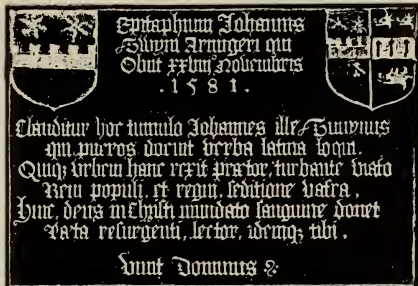 Epitaphium Johannis
Twyni Armigeri qui
Obiit Novembris
. 1581 .
Clauditur hoc tumulo Johannes ille Twynus
qui pueros docuit verba latina loqui.
Quiq; Urbem hanc rexit prætor, turbante viato
Rem populi, et regni, seditione vafra,
Huic, deus in Christi mundato sanguine donet
resurgenti, lector, idemq; tibi.
Vivit Dominus